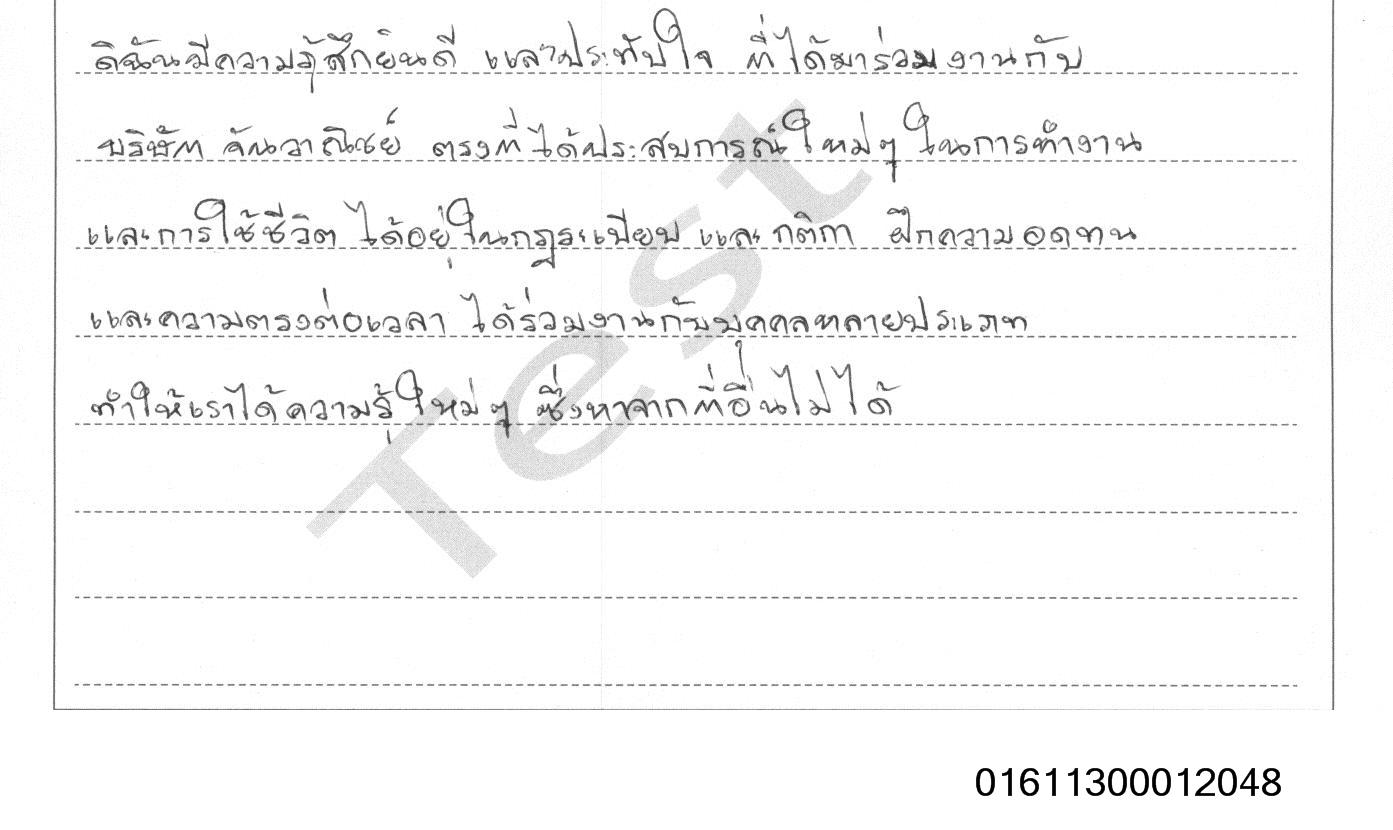 ดิฉันมีความรู้สึกยินดี และประทับใจ ที่ได้มาร่วมงานกับ
บริษัท จันวาณิชย์ ตรงที่ได้ประสบการณ์ใหม่ๆ ในการทำงาน
และการใช้ชีวิต ได้อยู่ในกฎระเบียบ และ กติกา ฝึกความอดทน
และความตรงต่อเวลา ได้ร่วมงานกับบุคคลหลายประเภท
ทำให้เราได้ความรู้ใหม่ๆ ซึ่งหาจากที่อื่นไม่ได้
Test
01611300012048